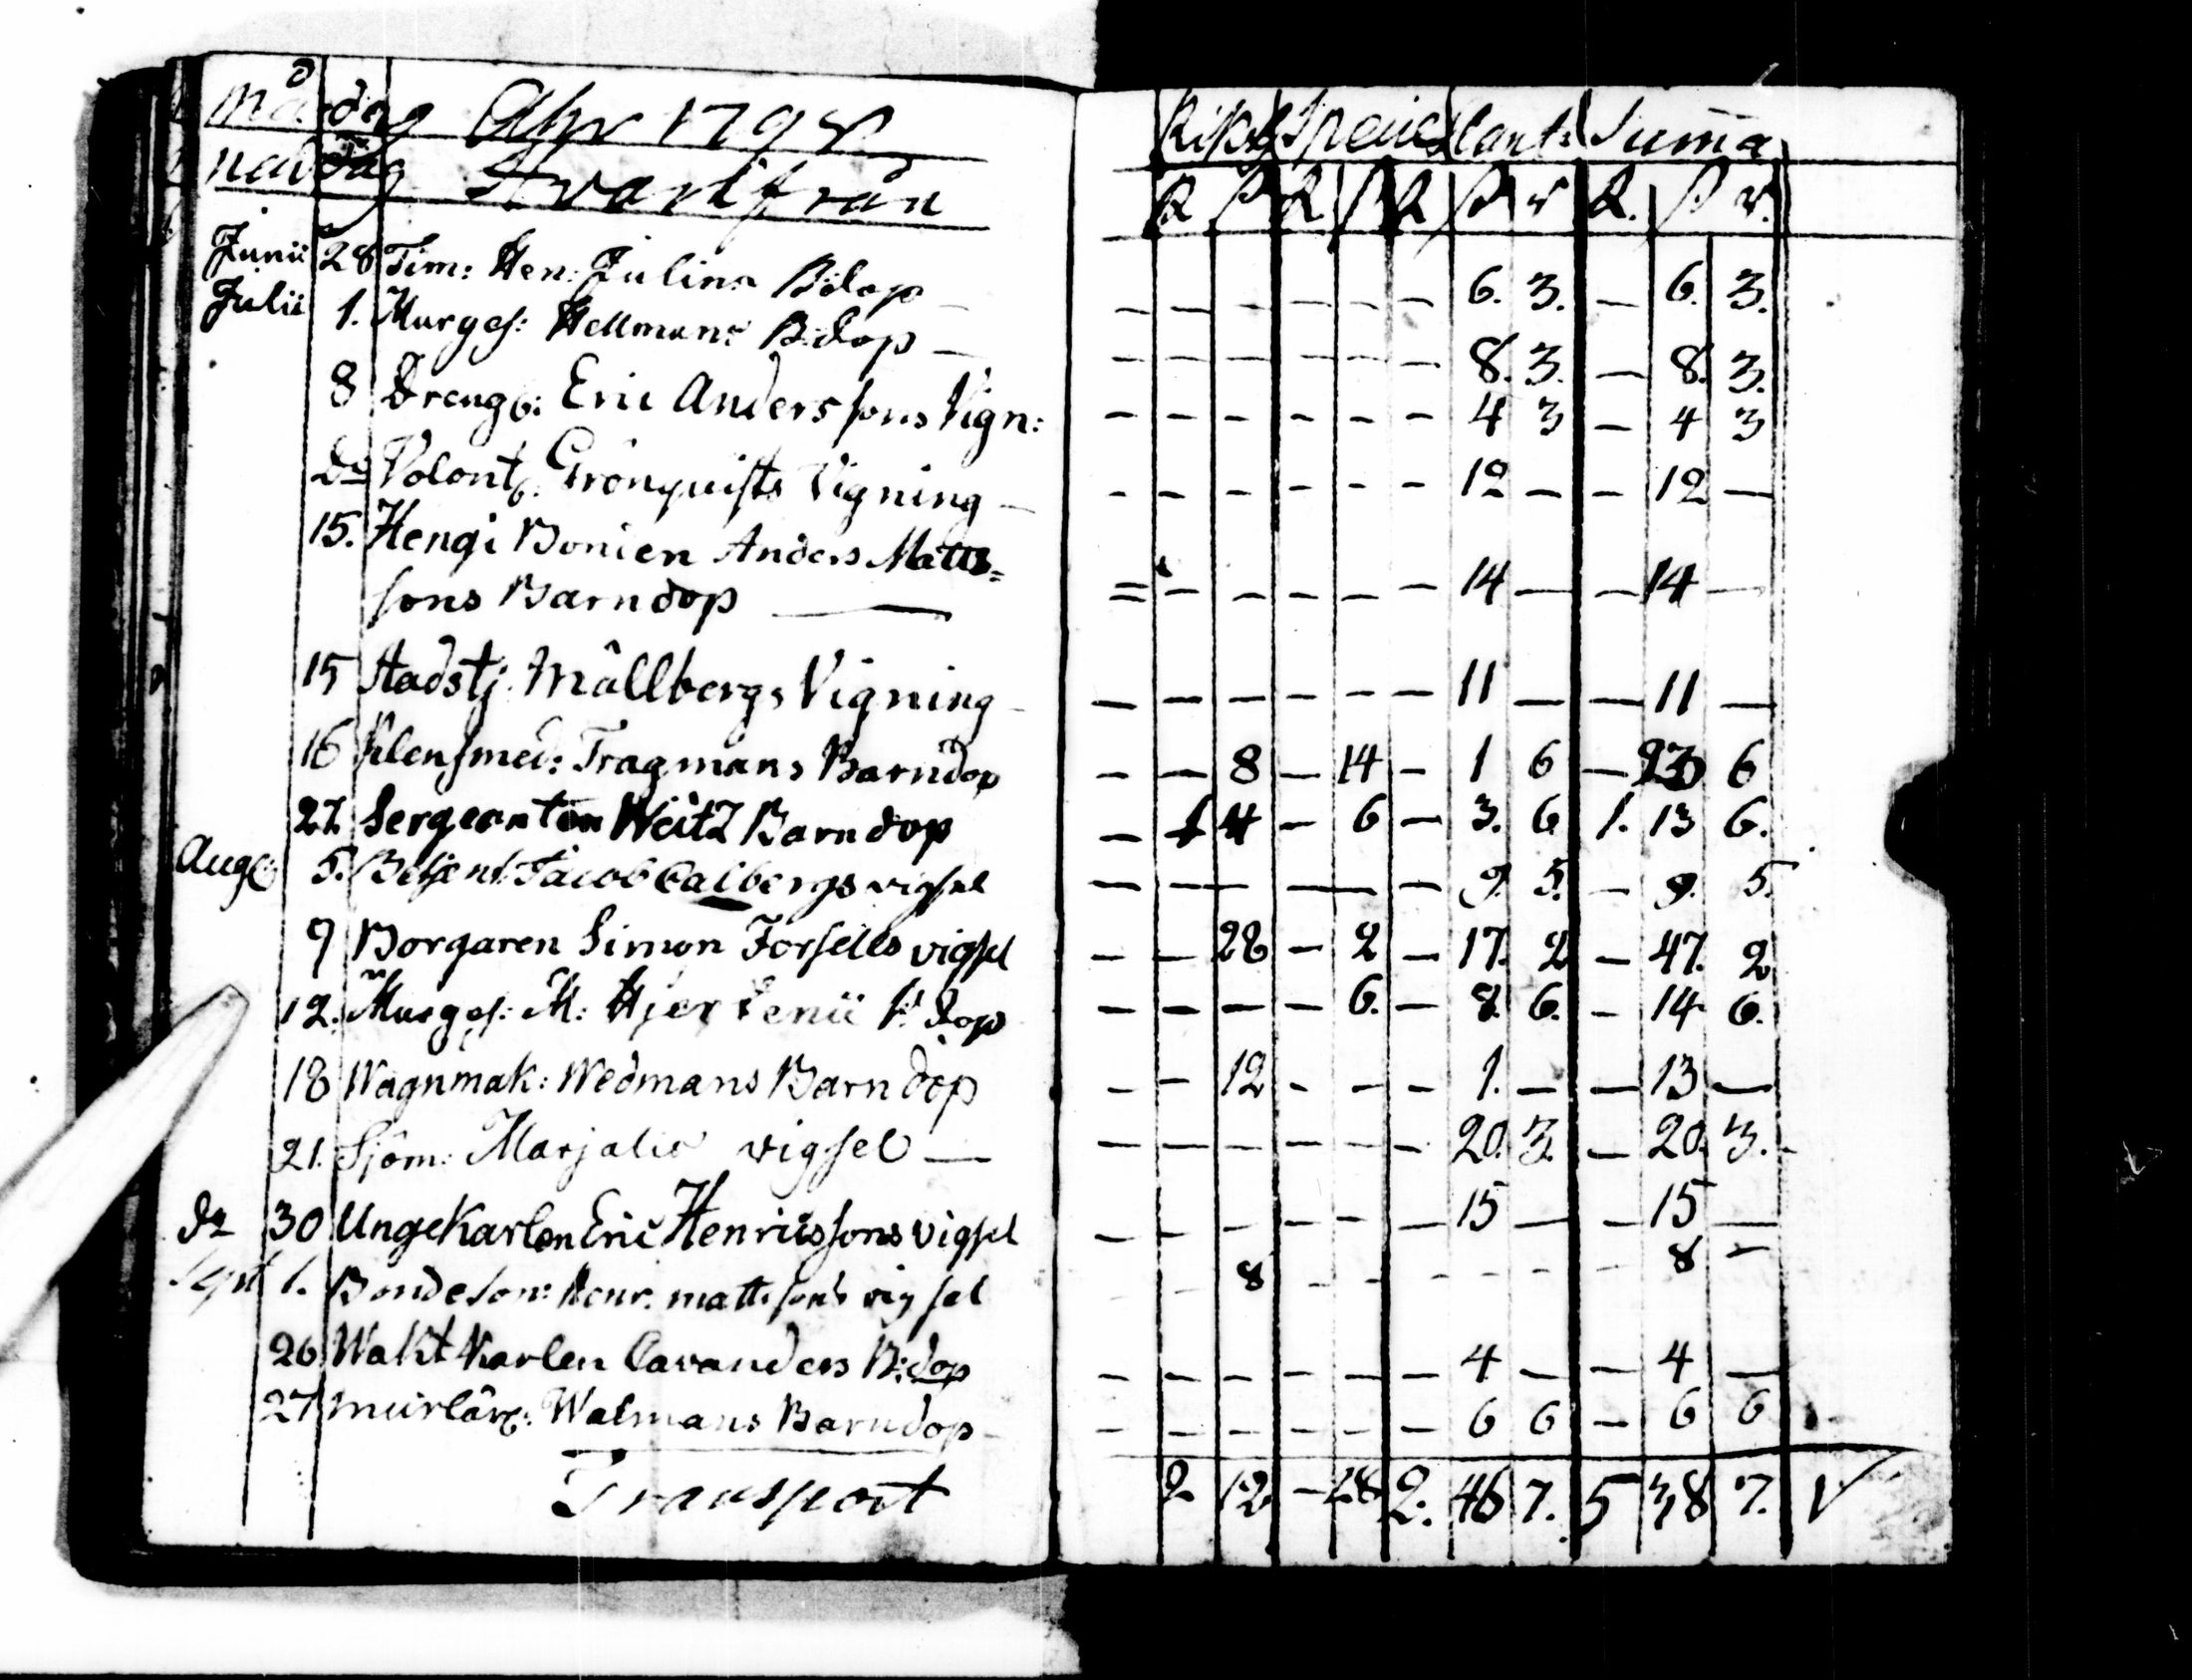 Må dag Åhr 1798
nad dag Hvarifrån
Rikss Specie Cant: Summa
R ß R ß R ß r R. ß r.
Junii 28 Tim: Hen: Julins B:dop — — — — — — 6. 3. — 6. 3.
Julii 1. Murges: Hellmans B:dop — — — — — — 8. 3. — 8. 3.
8 Drengs: Eric Anderssons Vign: — — — — — — 4 3 — 4 3
Do Volont: Grönquists Vigning — — — — — — 12 — — 12 —
15. Hengi Bonden Anders Matts=
sons Barndop — = — — — — — 14 — — 14 —
15 Stadstj. Mållbergs Vigning — — — — — — 11 — — 11 —
16 Klensmed: Tragmans Barndop — — 8 — 14 — 1 6 — 23 6
27. Sergeanten Weitz Barndop — 1 4 — 6 — 3. 6 1. 13 6.
Aug: 5. Betjent: Jacob Calbergs vigsel — — — — 9. 5. — 9. 5.
9 Borgaren Simon Forsells vigsel — — 28 — 2 — 17. 2 — 47. 2
12. Murges: M: Hjertenii B:dop — — — — 6. — 8. 6. — 14 6.
18 Wagnmak: Wedmans Barndop — — 12 — — — 1. — — 13 —
21. Sjöm: Marjalis vigsel — — — — — — — 20. 3. — 20. 3.
do 30 Ungekarlen Eric Henricssons vigsel — — — — — — 15 — — 15 —
Sept 1. Bondeson: Henr. mattssons vigsel — — 8 — — — — — — 8 —
26 Wakt Karlen Cavanders B:dop — — — — — — 4 — — 4 —
27 Murlärl: Walmans Barndop — — — — — — 6 6 — 6 6
Transport 2 12 — 28 2. 46 7. 5 38 7.